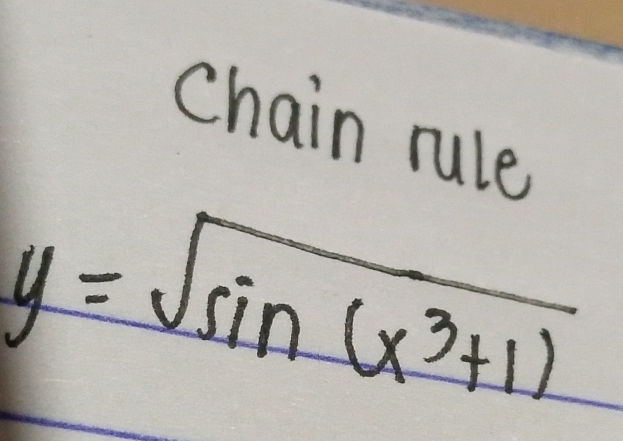 Chain rule
y = √sin (x³+1)